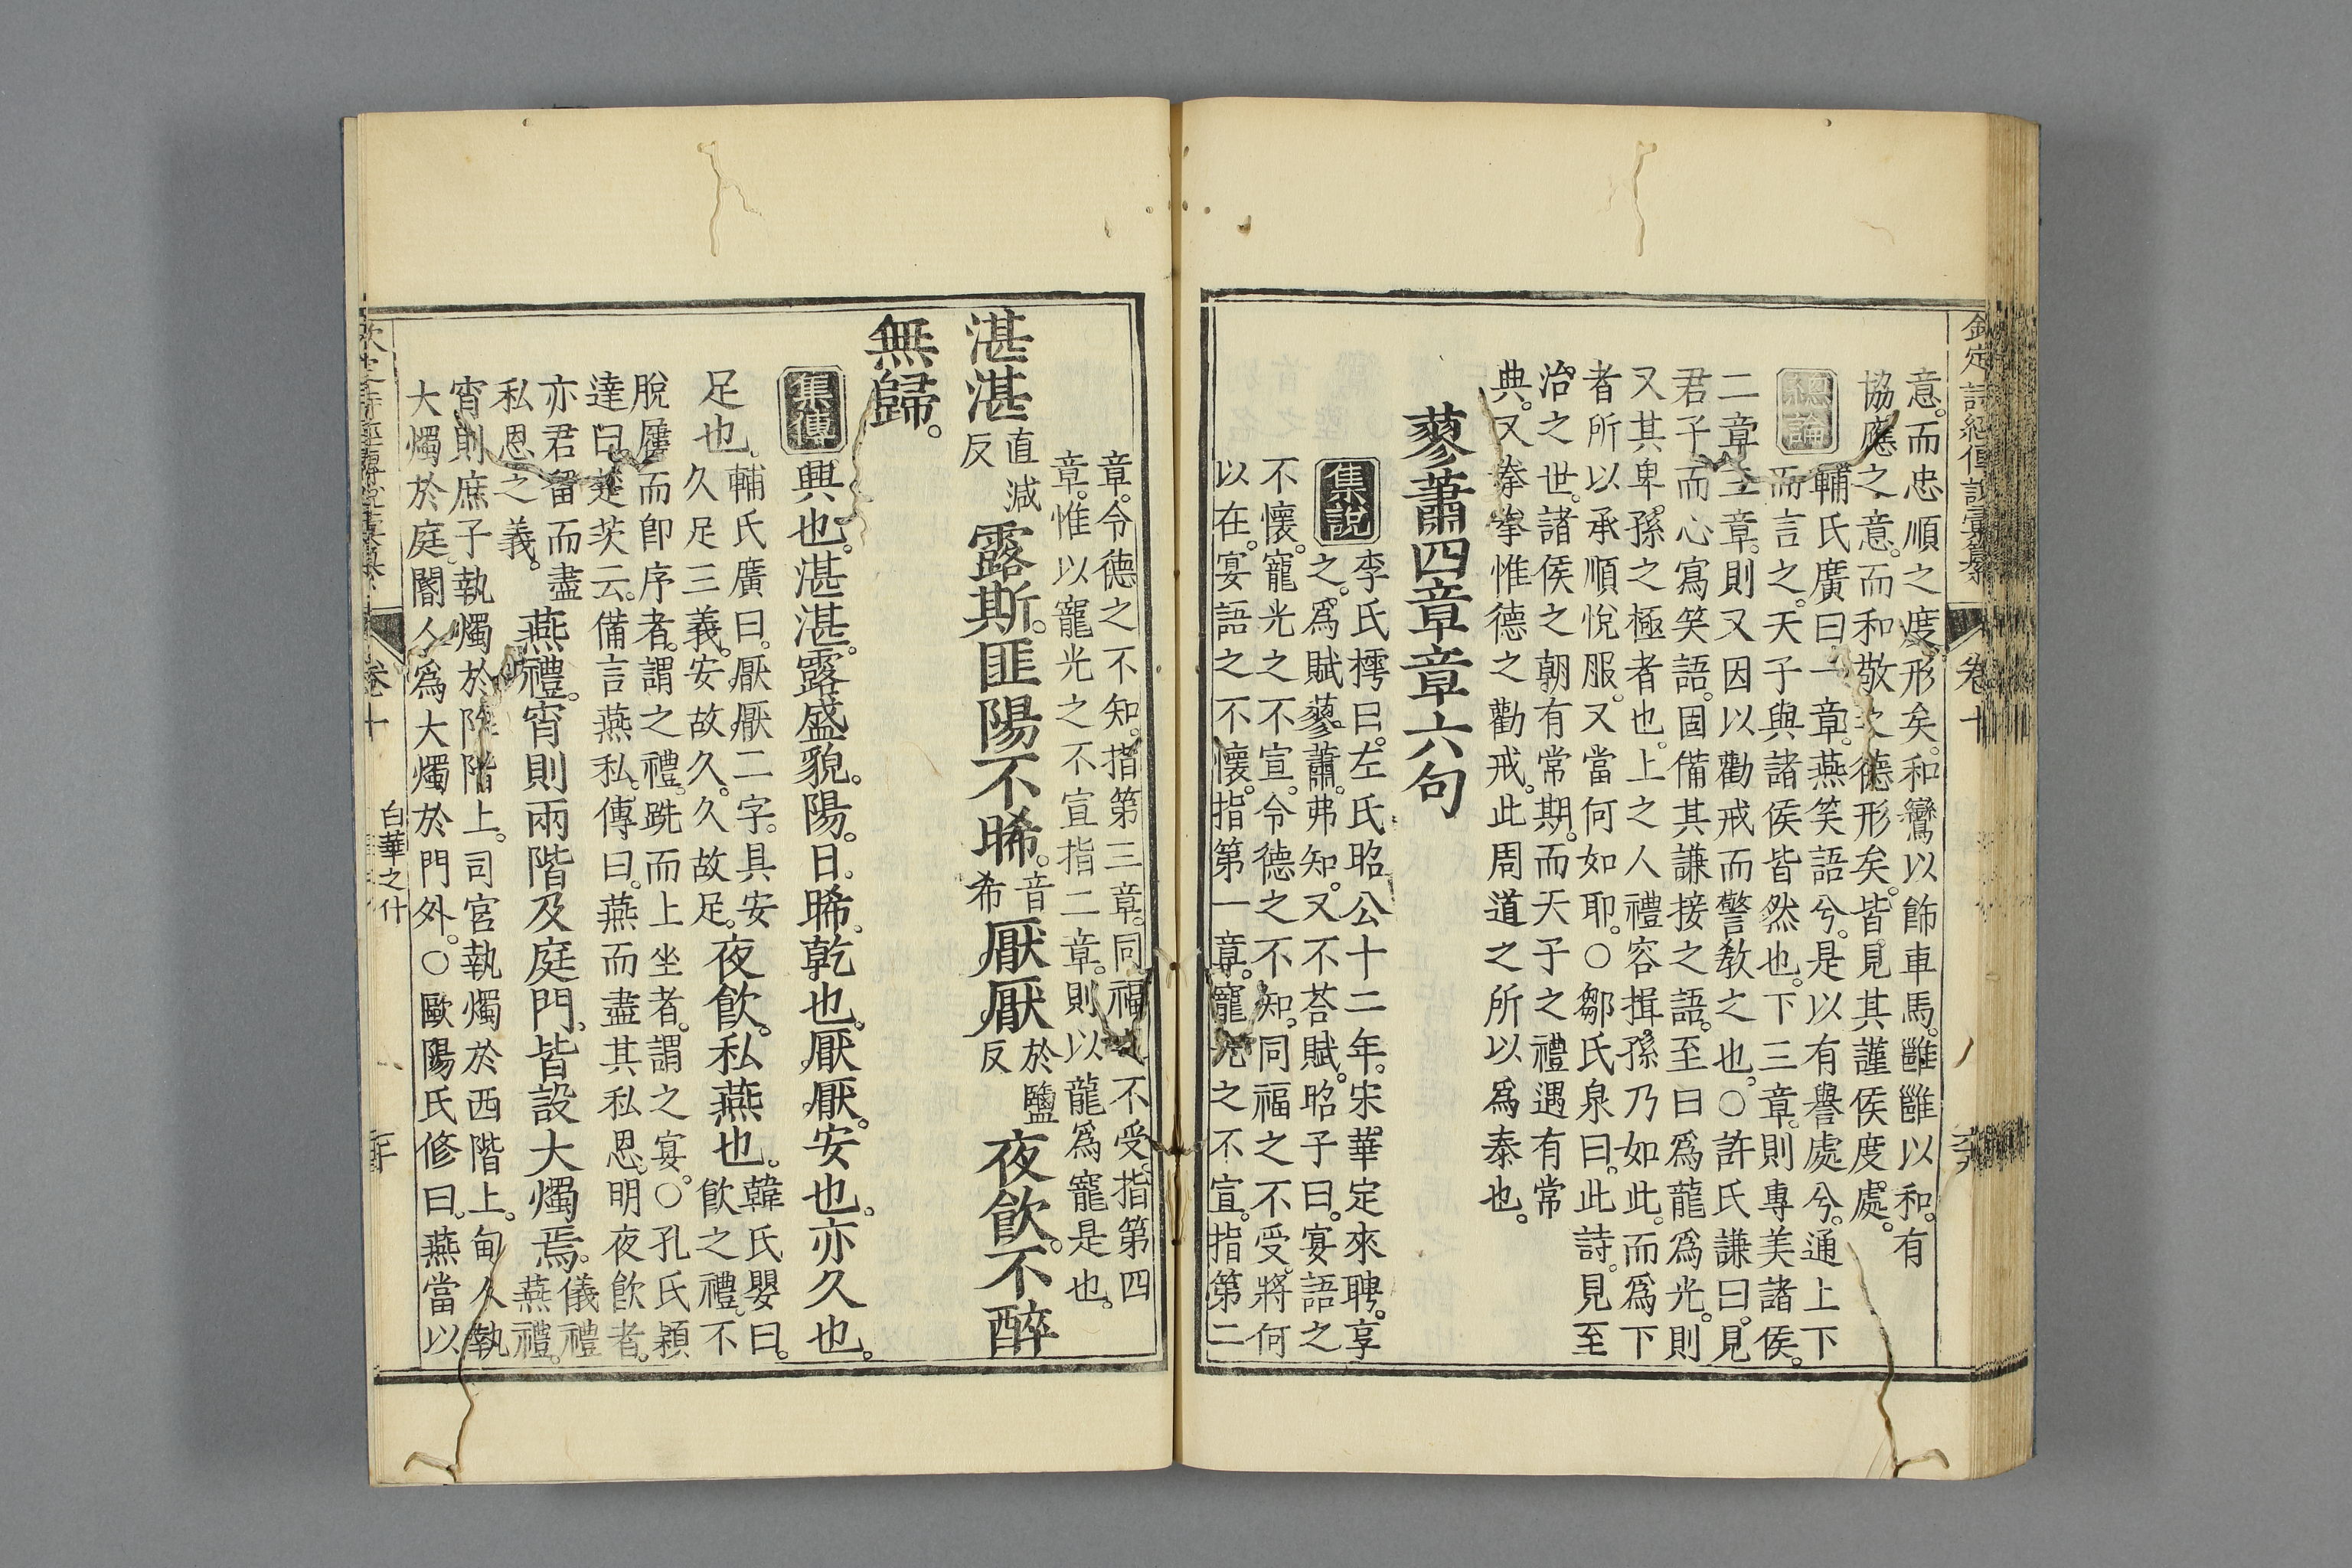 意。而忠順之度形矣。和鸞以飾車馬。雝雝以和。有
協應之意。而和敬之德形矣。皆見其謹侯度處。
總論
輔氏廣曰。一章。燕笑語兮。是以有譽處兮。通上下
而言之。天子與諸侯皆然也。下三章。則專美諸侯。
二章三章。則又因以勸戒而警教之也。○許氏謙曰。見
君子而心寫笑語。固備其謙接之語。至曰爲龍爲光。則
又其卑。孫之極者也。上之人禮容揖孫乃如此。而爲下
者所以承順悅服。又當何如耶。○鄒氏泉曰。此詩。見至
治之世。諸侯之朝有常期。而天子之禮遇有常
典。又拳拳惟德之勸戒。此周道之所以爲泰也。
蓼蕭四章章六句
集說
李氏樗曰。左氏昭公十二年。宋華定來聘。享
之。爲賦蓼蕭。弗知。又不荅賦。昭子曰。宴語之
不懷。寵光之不宣。令德之不知。同福之不受。將何
以在。宴語之不懷。指第一章。寵光之不宣。指第二
章。令德之不知。指第三章。同福之不受。指第四
章。惟以寵光之不宣指二章。則以龍爲寵是也。
湛湛直減反露斯。匪陽不晞。音希厭厭於鹽反夜飮。不醉
無歸。
集傳
興也。湛湛。露盛貌。陽。日。晞。乾也。厭厭。安也。亦久也。
足也。輔氏廣曰。厭厭二字。具安久足三義。安故久。久故足。夜飮。私燕也。韓氏嬰曰。飮之禮。不
脫屨而卽序者。謂之禮。跣而上坐者。謂之宴。○孔氏穎
達曰。楚茨云。備言燕私。傳曰。燕而盡其私恩。明夜飮者。
亦君留而盡私恩之義。燕禮。宵則兩階及庭門。皆設大燭焉。儀禮燕禮。
宵則庶子執燭於阼階上。司宮執燭於西階上。甸人執
大燭於庭。閽人爲大燭於門外。○歐陽氏修曰。燕當以
卷十
白華之什